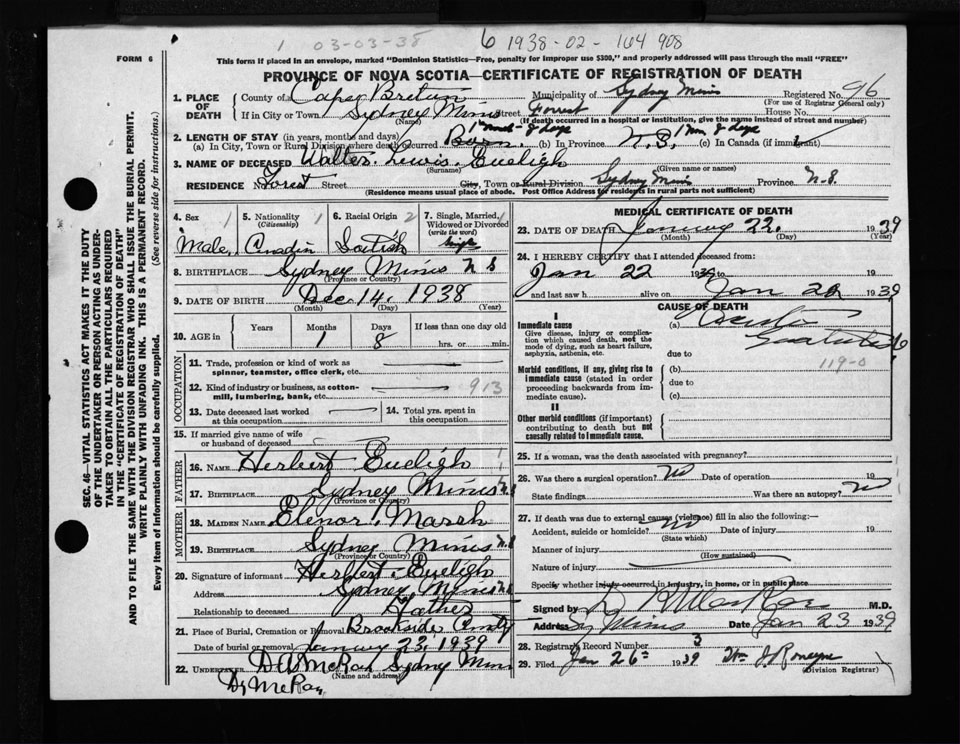 1 03-03-38 6 1938-02-164908
FORM 6
This form if placed in an envelope, marked "Dominion Statistics—Free, penalty for improper use $300," and properly addressed will pass through the mail "FREE"
PROVINCE OF NOVA SCOTIA—CERTIFICATE OF REGISTRATION OF DEATH
1. PLACE OF DEATH
County of Cape Breton Municipality of Sydney Mines Registered No. 916
(For use of Registrar General only)
If in City or Town Sydney Mines Street Forrest House No.
(Name) (If death occurred in a hospital or institution, give the name instead of street and number)
2. LENGTH OF STAY (in years, months and days)
(a) In City, Town or Rural Division where death occurred Born. (b) In Province N.S. (c) In Canada (if immigrant)
3. NAME OF DECEASED Walter Lewis Eueligh
(Surname) (Given name or names)
RESIDENCE No. Forest Street City, Town or Rural Division Sydney Mines Province N.S.
(Residence means usual place of abode. Post Office Address for residents in rural parts not sufficient)
SEC. 46—VITAL STATISTICS ACT MAKES IT THE DUTY
OF THE UNDERTAKER OR PERSON ACTING AS UNDER-
TAKER TO OBTAIN ALL THE PARTICULARS REQUIRED
IN THE "CERTIFICATE OF REGISTRATION OF DEATH"
AND TO FILE THE SAME WITH THE DIVISION REGISTRAR WHO SHALL ISSUE THE BURIAL PERMIT.
WRITE PLAINLY WITH UNFADING INK. THIS IS A PERMANENT RECORD.
Every item of Information should be carefully supplied. (See reverse side for instructions.)
4. Sex 1 5. Nationality 1 6. Racial Origin 2 7. Single, Married, 1
(Citizenship) Widowed or Divorced
(write the word)
Male Scotish Single
8. BIRTHPLACE Sydney Mines N S
(Province or Country)
9. DATE OF BIRTH Dec 14. 1938
(Month) (Day) (Year)
10. AGE in Years Months Days If less than one day old
1 8 hrs. or min.
OCCUPATION
11. Trade, profession or kind of work as
spinner, teamster, office clerk, etc.
12. Kind of industry or business, as cotton-
mill, lumbering, bank, etc. 913
13. Date deceased last worked
at this occupation
14. Total yrs. spent in
this occupation
15. If married give name of wife
or husband of deceased
FATHER
16. NAME Herbert Eueligh 1
17. BIRTHPLACE Sydney Mines N.S
(Province or Country)
MOTHER
18. MAIDEN NAME Elenor. Marsh
19. BIRTHPLACE Sydney Mines N.S
(Province or Country)
20. Signature of informant Herbert Eueligh
Address Sydney Mines N.S
Relationship to deceased Father
21. Place of Burial, Cremation or Removal Brookside
Date of burial or removal January 23, 1939
22. UNDERTAKER D A McRae Sydney Mines
(Name and address)
MEDICAL CERTIFICATE OF DEATH
23. DATE OF DEATH January 22. 1939
(Month) (Day) (Year)
24. I HEREBY CERTIFY that I attended deceased from:
Jan 22 19 to 19
and last saw h alive on Jan 22 1939
CAUSE OF DEATH
I
Immediate cause
Give disease, injury or complica-
tion which caused death, not the
mode of dying, such as heart failure,
asphyxia, asthenia, etc.
(a)
due to 119-0
Morbid conditions, if any, giving rise to
immediate cause (stated in order
proceeding backwards from im-
mediate cause).
(b)
due to
(c)
II
Other morbid conditions (if important)
contributing to death but not
causally related to immediate cause.
25. If a woman, was the death associated with pregnancy?
26. Was there a surgical operation? No Date of operation 19
State findings Was there an autopsy? No
27. If death was due to external causes (violence) fill in also the following:—
Accident, suicide or homicide? No Date of injury 19
(State which)
Manner of injury
(How sustained)
Nature of injury
Specify whether injury occurred in industry, in home, or in public place
Signed by M.D.
Address Sy Mines Date Jan 23 1939
28. Registration Record Number 3
29. Filed Jan 26th 1939
(Division Registrar)